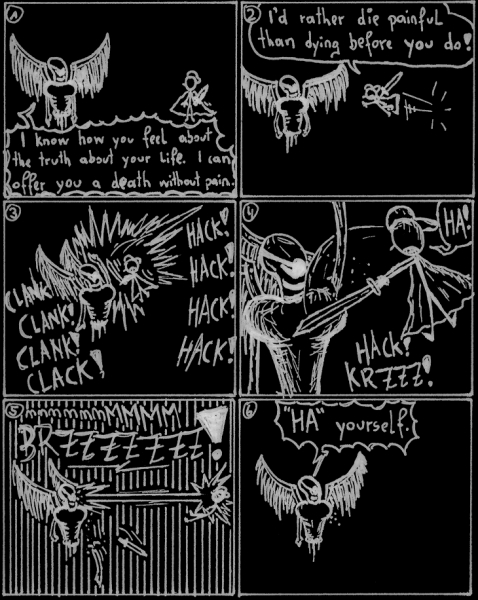 1
I know how you feel about
the truth about your life. I can
offer you a death without pain.
2
I'd rather die painful
than dying before you do!
3
HACK!
HACK!
HACK!
HACK!
CLANK!
CLANK!
CLANK!
CLACK!
4
HA!
HACK!
KRZZZ!
5
mmmmmmMMMM
BRZZZZZZZ!
6
"HA" yourself.